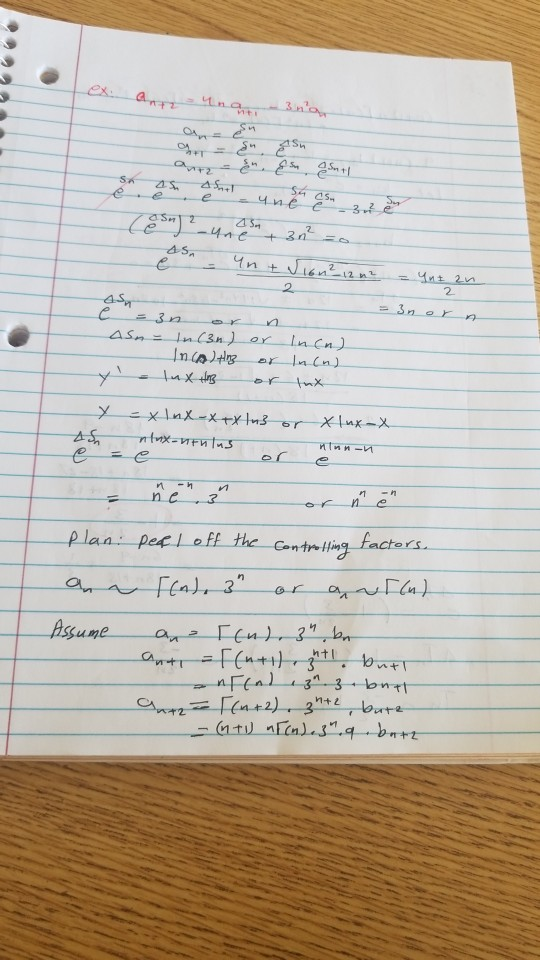 ex: a_{n+2} = 4n a_{n+1} - 3n² a_n
a_n = e^{S_n}
a_{n+1} = e^{S_n} e^{ΔS_n}
a_{n+2} = e^{S_n} · e^{ΔS_n} · e^{ΔS_{n+1}}
e^{S_n} · e^{ΔS_n} · e^{ΔS_{n+1}} = 4n e^{S_n} e^{ΔS_n} - 3n² e^{S_n}
(e^{ΔS_n})² - 4n e^{ΔS_n} + 3n² = 0
e^{ΔS_n} = \frac{4n ± \sqrt{16n² - 12n²}}{2} = \frac{4n ± 2n}{2}
= 3n or n
e^{ΔS_n} = 3n or n
ΔS_n = ln(3n) or ln(n)
ln(n) + ln3 or ln(n)
y' = lnx + ln3 or lnx
y = x lnx - x + x ln3 or x lnx - x
e^{ΔS_n} = e^{n lnx - n + n ln3} or e^{n ln n - n}
= n^n e^{-n} · 3^n or n^n e^{-n}
Plan: peel off the controlling factors.
a_n ~ Γ(n) · 3^n or a_n ~ Γ(n)
Assume a_n = Γ(n) · 3^n · b_n
a_{n+1} = Γ(n+1) · 3^{n+1} · b_{n+1}
= nΓ(n) · 3^n · 3 · b_{n+1}
a_{n+2} = Γ(n+2) · 3^{n+2} · b_{n+2}
= (n+1) nΓ(n) · 3^n · 9 · b_{n+2}